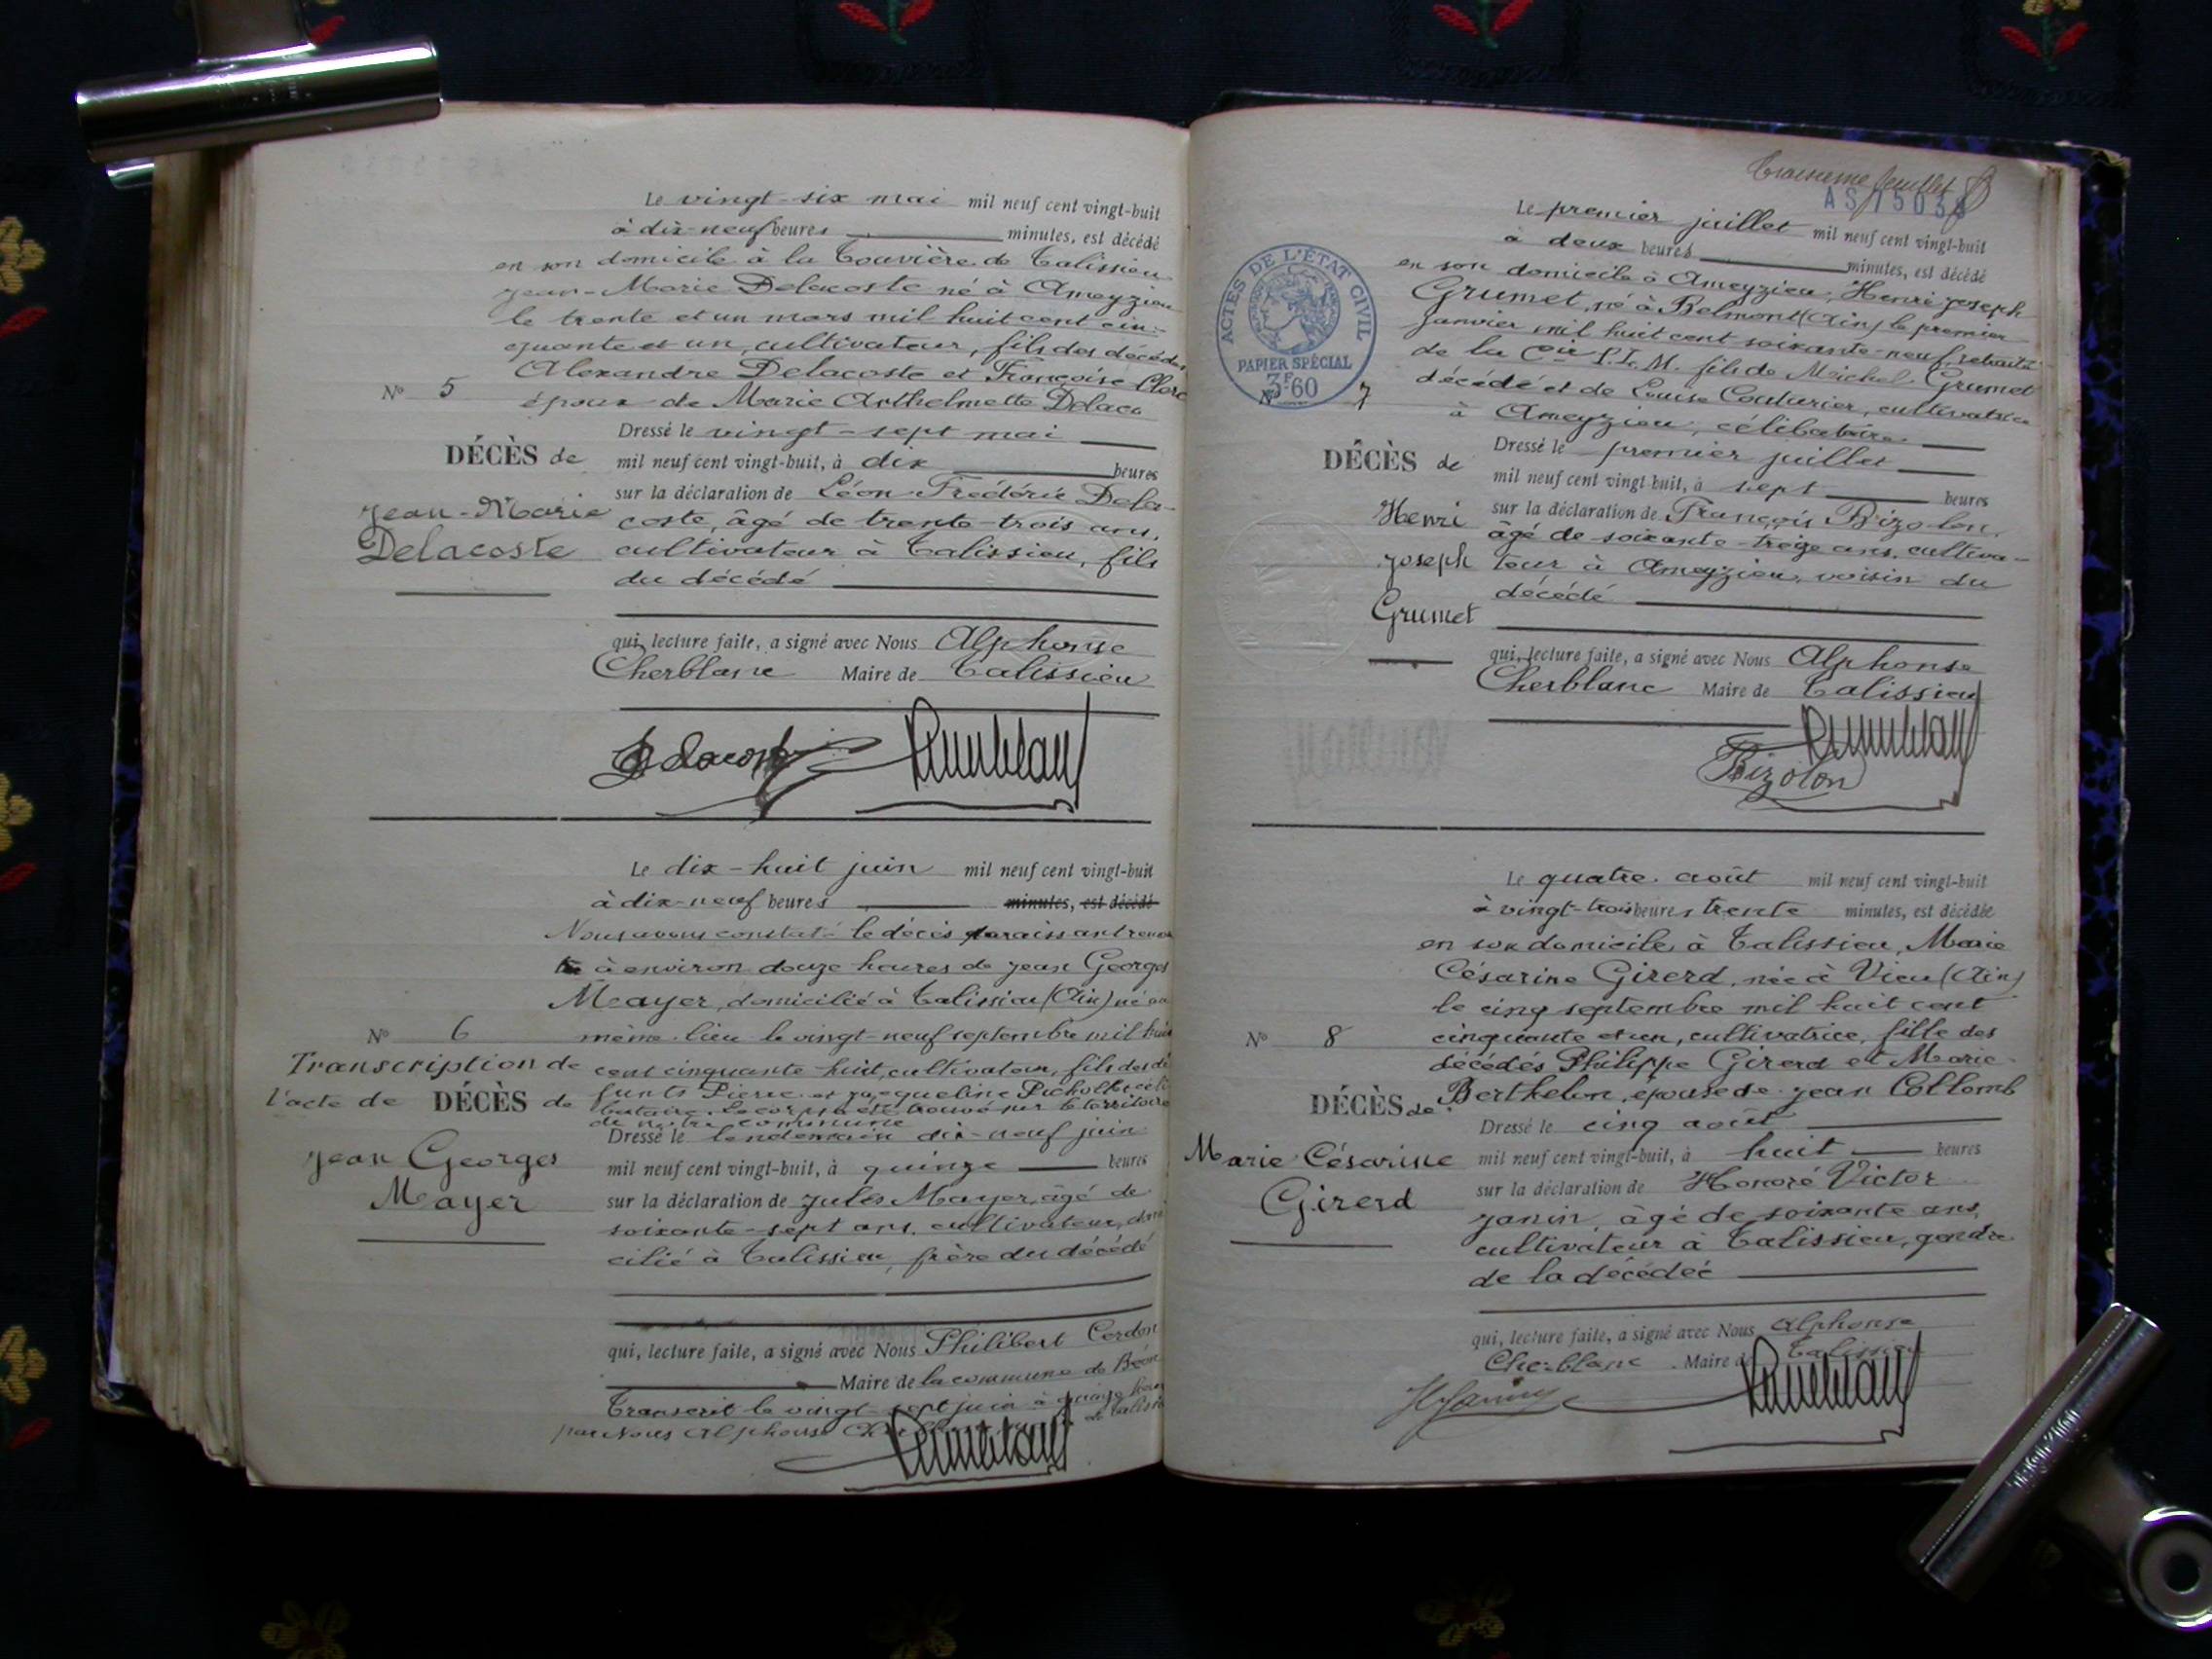 Le vingt-six mai mil neuf cent vingt-huit
à dix-neuf heures minutes, est décédé
en son domicile à la Touvière de Talissieu
Jean-Marie Delacoste né à Ameyzieu
le trente et un mars mil huit cent cin-
quante et un, cultivateur, fils des décédés
Alexandre Delacoste et Françoise Clerc
époux de Marie Anthelmette Delaco
N° 5
DÉCÈS de
Jean-Marie
Delacoste
Dressé le vingt-sept mai
mil neuf cent vingt-huit, à dix heures
sur la déclaration de Léon Frédéric Dela-
coste, âgé de trente-trois ans,
cultivateur à Talissieu, fils
du décédé
qui, lecture faite, a signé avec Nous Alphonse
Cherblanc Maire de Talissieu
Delacoste
Le dix-huit juin mil neuf cent vingt-huit
à dix-neuf heures minutes, est décédé
Nous avons constaté le décès paraissant remon
à environ douze heures de Jean Georges
Mayer, domicilié à Talissieu (Ain) né au
même lieu le vingt-neuf septembre mil huit
cent cinquante-huit, cultivateur, fils des dé
funts Pierre et Jacqueline Picholt céli
bataire. Le corps a été trouvé sur le territoire
de notre commune
N° 6
Transcription de
l'acte de DÉCÈS de
Jean Georges
Mayer
Dressé le lendemain dix-neuf juin
mil neuf cent vingt-huit, à quinze heures
sur la déclaration de Jules Mayer, âgé de
soixante-sept ans, cultivateur, domi
cilié à Talissieu, frère du décédé
qui, lecture faite, a signé avec Nous Philibert Cerdon
Maire de la commune de Béon
Transcrit le vingt-sept juin à quinze heu
par Nous Alphonse de Talissi
Troisième feuillet
AS 15038
ACTES DE L'ÉTAT CIVIL
PAPIER SPÉCIAL
3F60
Le premier juillet mil neuf cent vingt-huit
à deux heures minutes, est décédé
en son domicile à Ameyzieu, Henri Joseph
Grumet, né à Belmont (Ain) le premier
janvier mil huit cent soixante-neuf, retraité
de la Cie P.L.M. fils de Michel Grumet
décédé et de Louise Couturier, cultivatrice
à Ameyzieu, célibataire
N° 7
DÉCÈS de
Henri
Joseph
Grumet
Dressé le premier juillet
mil neuf cent vingt-huit, à sept heures
sur la déclaration de François Bizolon,
âgé de soixante-treize ans, cultiva-
teur à Ameyzieu, voisin du
décédé
qui, lecture faite, a signé avec Nous Alphonse
Cherblanc Maire de Talissieu
Bizolon
Le quatre août mil neuf cent vingt-huit
à vingt-trois heures trente minutes, est décédée
en son domicile à Talissieu, Marie
Césarine Girerd, née à Vieu (Ain)
le cinq septembre mil huit cent
cinquante et un, cultivatrice, fille des
décédés Philippe Girerd et Marie
Berthelon, épouse de Jean Collomb
N° 8
DÉCÈS de
Marie Césarine
Girerd
Dressé le cinq août
mil neuf cent vingt-huit, à huit heures
sur la déclaration de Honoré Victor
Janin, âgé de soixante ans,
cultivateur à Talissieu, gendre
de la décédée
qui, lecture faite, a signé avec Nous Alphonse
Cherblanc Maire de Talissieu
HJanin